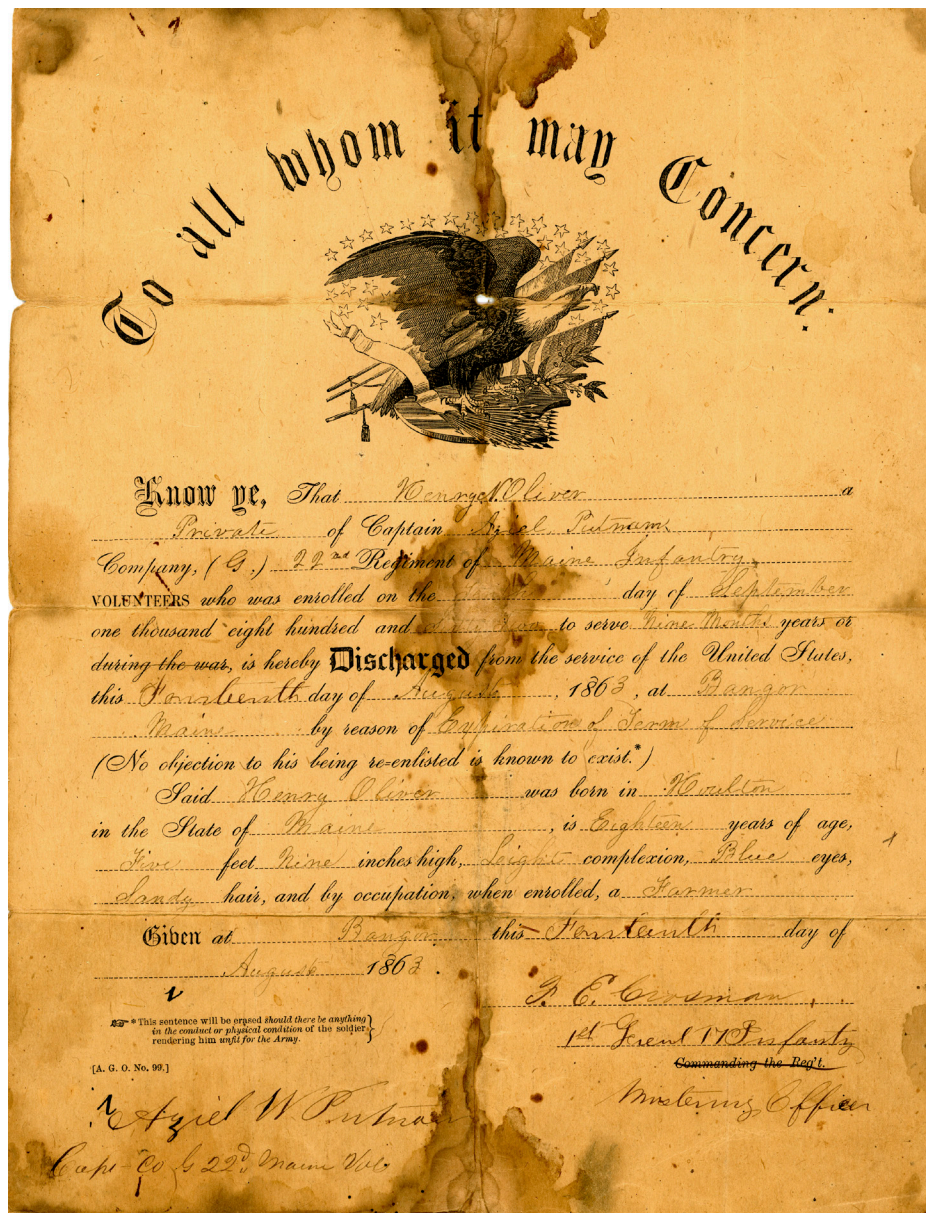 To all whom it may Concern:
Know ye, That Henry Oliver a
Private of Captain Aziel Putnams
Company, (G.) 22nd Regiment of Maine Infantry,
VOLUNTEERS who was enrolled on the day of September
one thousand eight hundred and to serve Nine Months years or
during the war, is hereby Discharged from the service of the United States,
this Fourteenth day of August, 1863, at Bangor
Maine by reason of Expiration of Term of Service
(No objection to his being re=enlisted is known to exist.*)
Said Henry Oliver was born in Houlton
in the State of Maine, is Eighteen years of age,
Five feet Nine inches high, Light complexion, Blue eyes,
Sandy hair, and by occupation, when enrolled, a Farmer
Given at Bangor this Fourteenth day of
August 1863.
*This sentence will be erased should there be anything
in the conduct or physical condition of the soldier
rendering him unfit for the Army.
[A. G. O. No. 99.]
F. E. Crosman,
1st Lieut 17 Infanty
Commanding the Reg't.
Mustering Officer
Aziel W Putnam
Capt Co G 22d Maine Vol